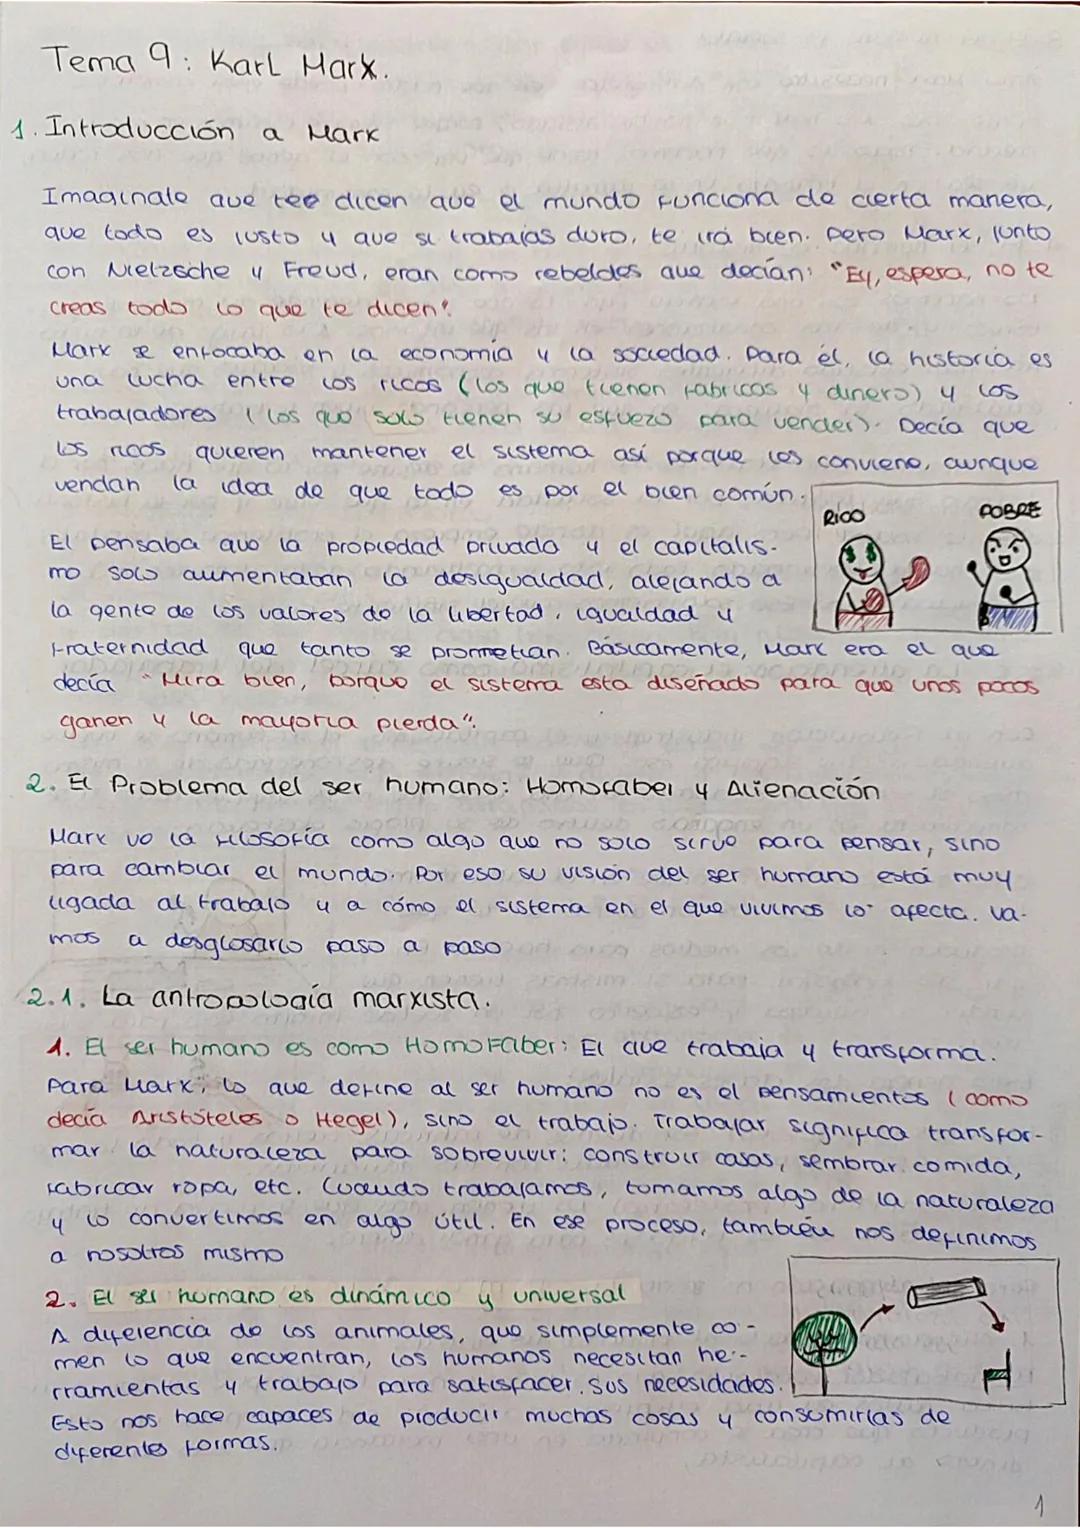 Tema 9: Karl Marx.
1. Introducción a Marx
Imaginate que tee dicen que el mundo funciona de cierta manera,
que todo es justo y que si trabajas duro, te irá bien. Pero Marx, junto
con Nietzsche y Freud, eran como rebeldes que decían: "Ey, espera, no te
creas todo lo que te dicen".
Marx se enfocaba en la economía y la sociedad. Para él, la historia es
una lucha entre los ricos (los que tienen fabricas y dinero) y los
trabajadores (los que solo tienen su esfuerzo para vender). Decía que
los ricos quieren mantener el sistema así porque les conviene, aunque
vendan la idea de que todo es por el bien común.
RICO
POBRE
El pensaba que la propiedad privada y el capitalis-
mo solo aumentaban la desigualdad, alejando a
la gente de los valores de la libertad, igualdad y
fraternidad que tanto se prometían. Básicamente, Marx era el que
decía "Mira bien, porque el sistema esta diseñado para que unos pocos
ganen y la mayoría pierda".
2. El Problema del ser humano: Homofaber y Alienación
Marx ve la filosofía como algo que no solo sirve para pensar, sino
para cambiar el mundo. Por eso su visión del ser humano está muy
ligada al trabajo y a cómo el sistema en el que vivimos lo afecta. Va-
mos a desglosarlo paso a paso
2.1. La antropología marxista.
1. El ser humano es como HomoFaber: El que trabaja y transforma.
Para Marx, lo que define al ser humano no es el pensamientos (como
decía Aristóteles o Hegel), sino el trabajo. Trabajar significa transfor-
mar la naturaleza para sobrevivir: construir casas, sembrar comida,
fabricar ropa, etc. Cuando trabajamos, tomamos algo de la naturaleza
y lo convertimos en algo útil. En ese proceso, también nos definimos
a nosotros mismo
2. El ser humano es dinámico y universal
A diferencia de los animales, que simplemente co-
men lo que encuentran, los humanos necesitan he-
rramientas y trabajo para satisfacer sus necesidades.
Esto nos hace capaces de producir muchas cosas y consumirlas de
diferentes formas.
1